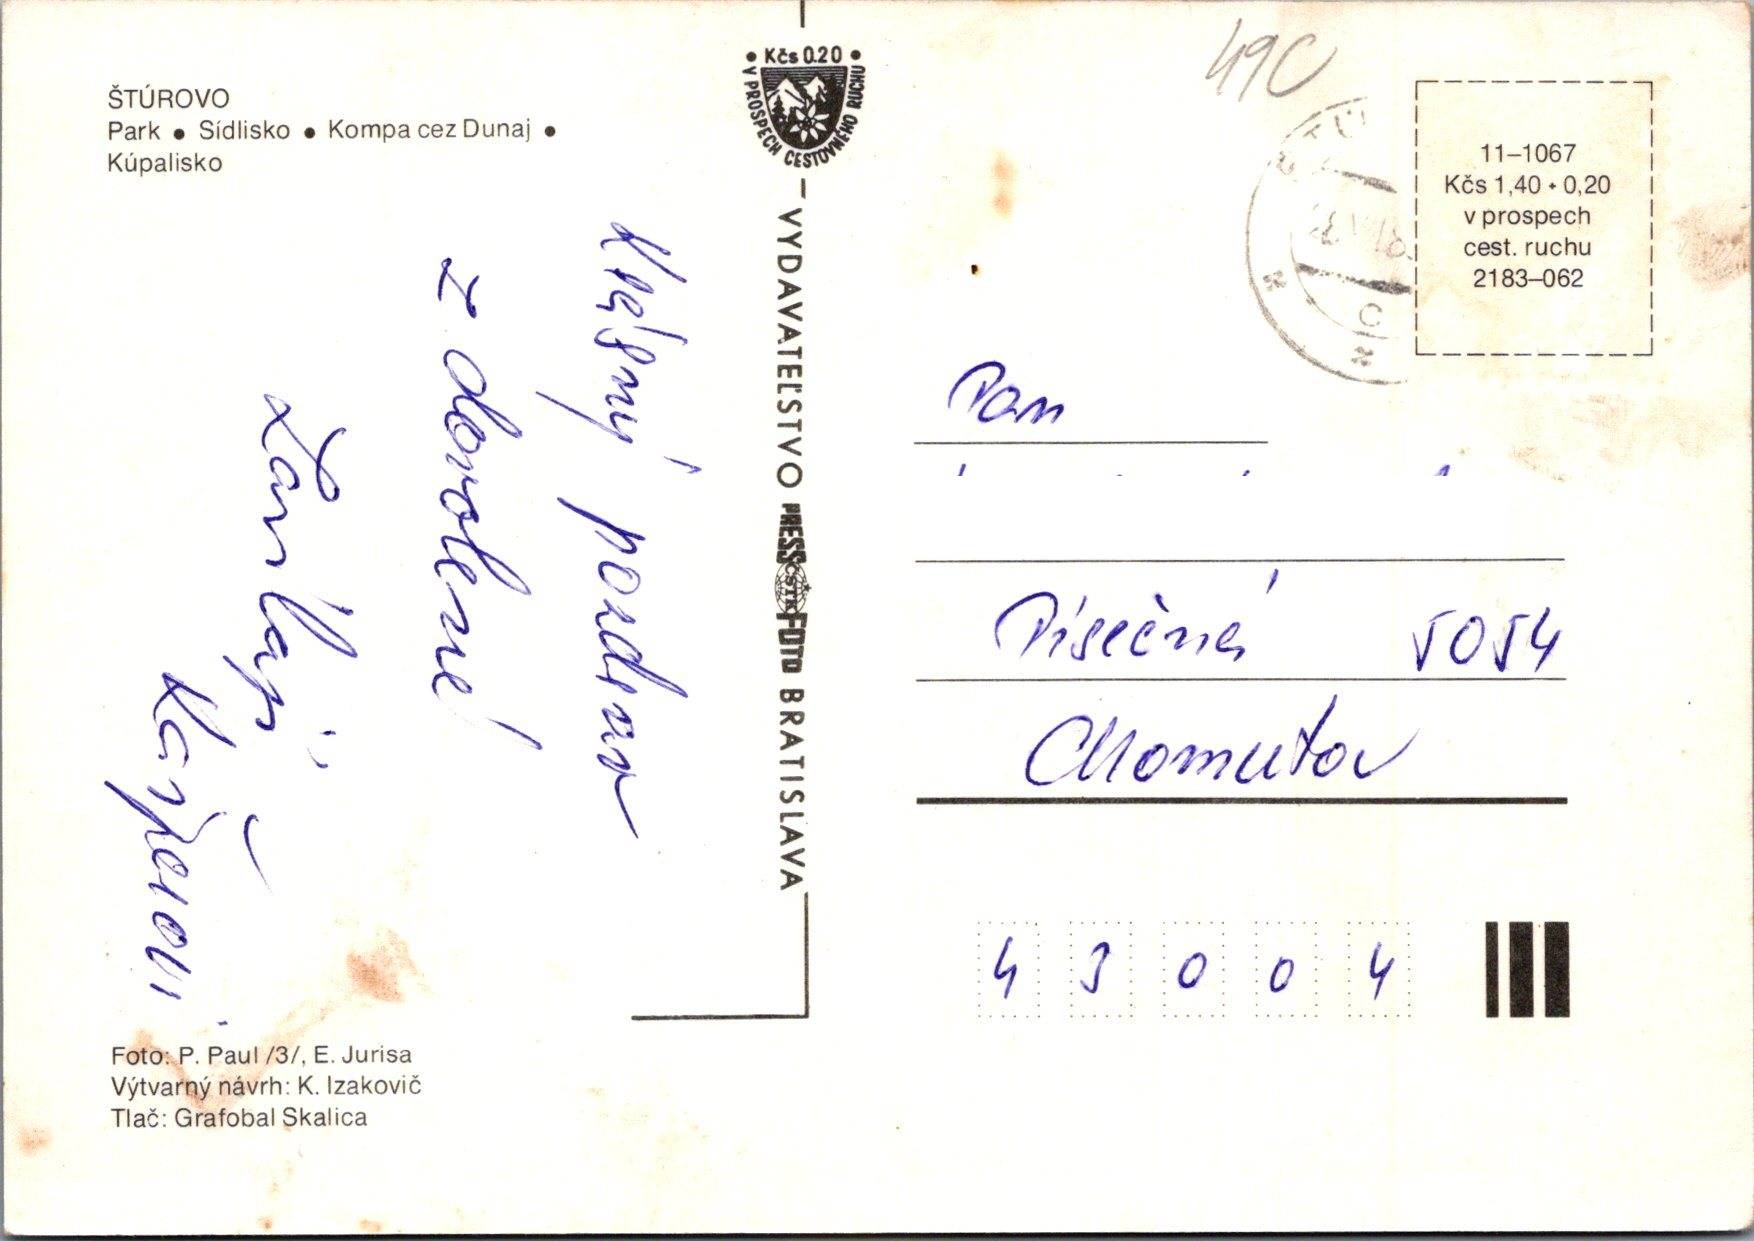 ŠTÚROVO
Park • Sídlisko • Kompa cez Dunaj •
Kúpalisko
• Kčs 0.20 •
V PROSPECH CESTOVNÉHO RUCHU
VYDAVATEĽSTVO PRESSFOTO BRATISLAVA
ČSTK
Krásný pozdrav
z dovolené
Foto: P. Paul /3/, E. Jurisa
Výtvarný návrh: K. Izakovič
Tlač: Grafobal Skalica
49C
11–1067
Kčs 1,40 + 0,20
v prospech
cest. ruchu
2183–062
Pan
Písečná 5054
Chomutov
43004